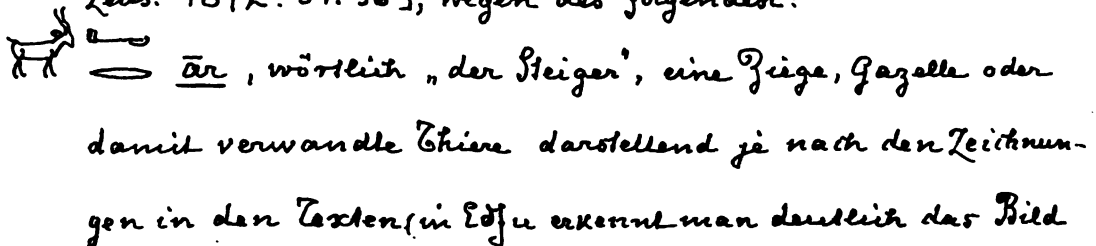 1872. 
ār, wörtlich „der Steiger", eine Ziege, Gazelle oder
damit verwandte Thiere darstellend je nach den Zeichnun-
gen in den Texten (in Edfu erkennt man deutlich das Bild